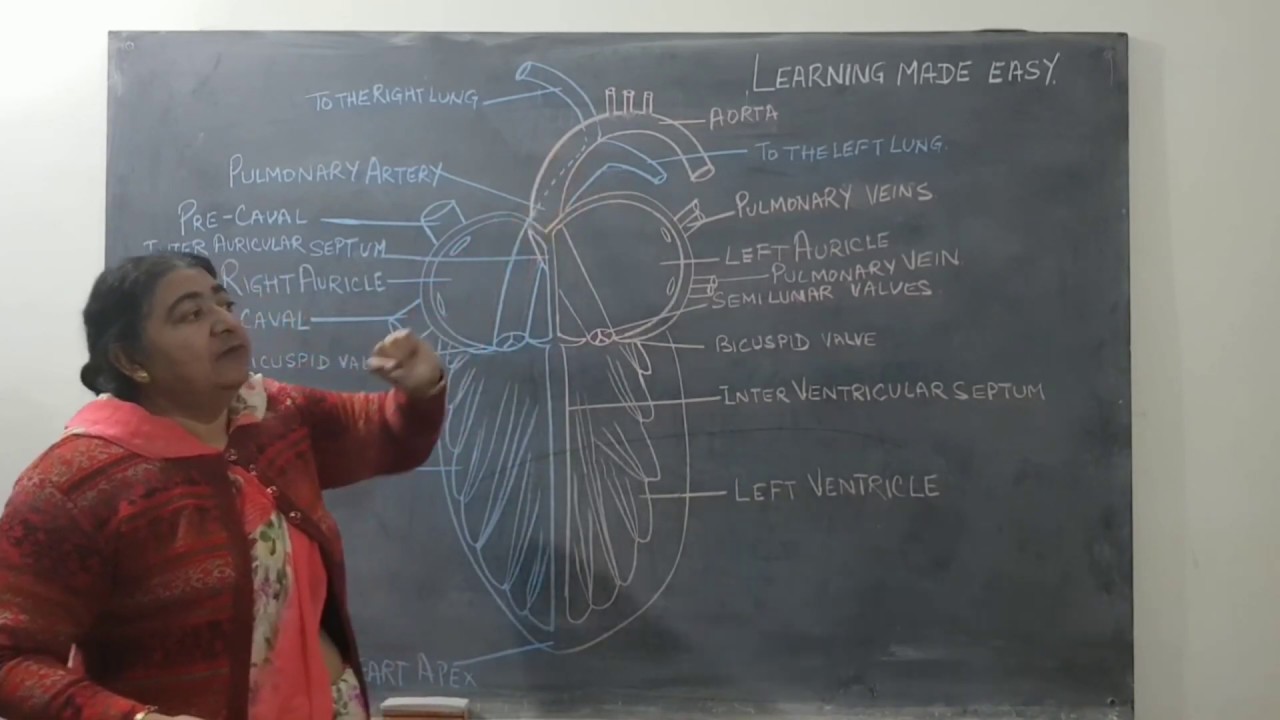 LEARNING MADE EASY.
TO THE RIGHT LUNG
AORTA
TO THE LEFT LUNG.
PULMONARY ARTERY
PULMONARY VEINS
PRE-CAVAL
INTER AURICULAR SEPTUM
LEFT AURICLE
PULMONARY VEIN
RIGHT AURICLE
SEMILUNAR VALVES
CAVAL
BICUSPID VALVE
INTER VENTRICULAR SEPTUM
LEFT VENTRICLE
APEX